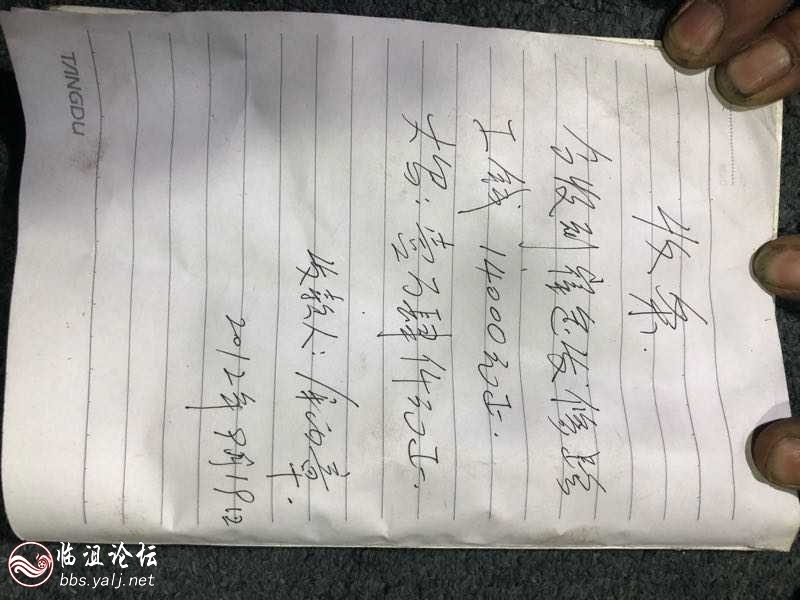 收条.
今收到崔志发修路
工钱 14000元正.
大写:壹万肆仟元正.
收款人:
2012年8月18日
TANGDU
临沮论坛
bbs.yalj.net